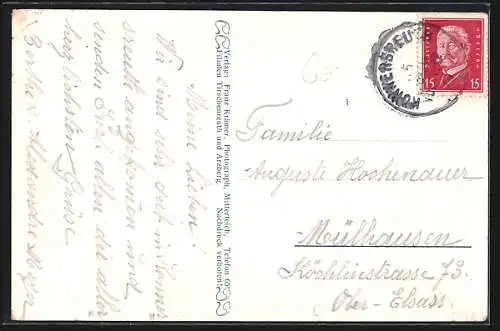 Meine Lieben!
Wir sind sehr gut in Konners-
reuth angekommen und
senden Euch allen die aller
herzlichsten Grüsse.
Verlag: Franz Krämer, Photograph, Mitterteich, Telefon 60
Filialen Tirschenreuth und Arzberg. Nachdruck verboten!
KONNERSREUTH
DEUTSCHES REICH
15 15
Familie
Auguste Hochenauer
Mülhausen
Köchlinstrasse 73.
Ober-Elsass